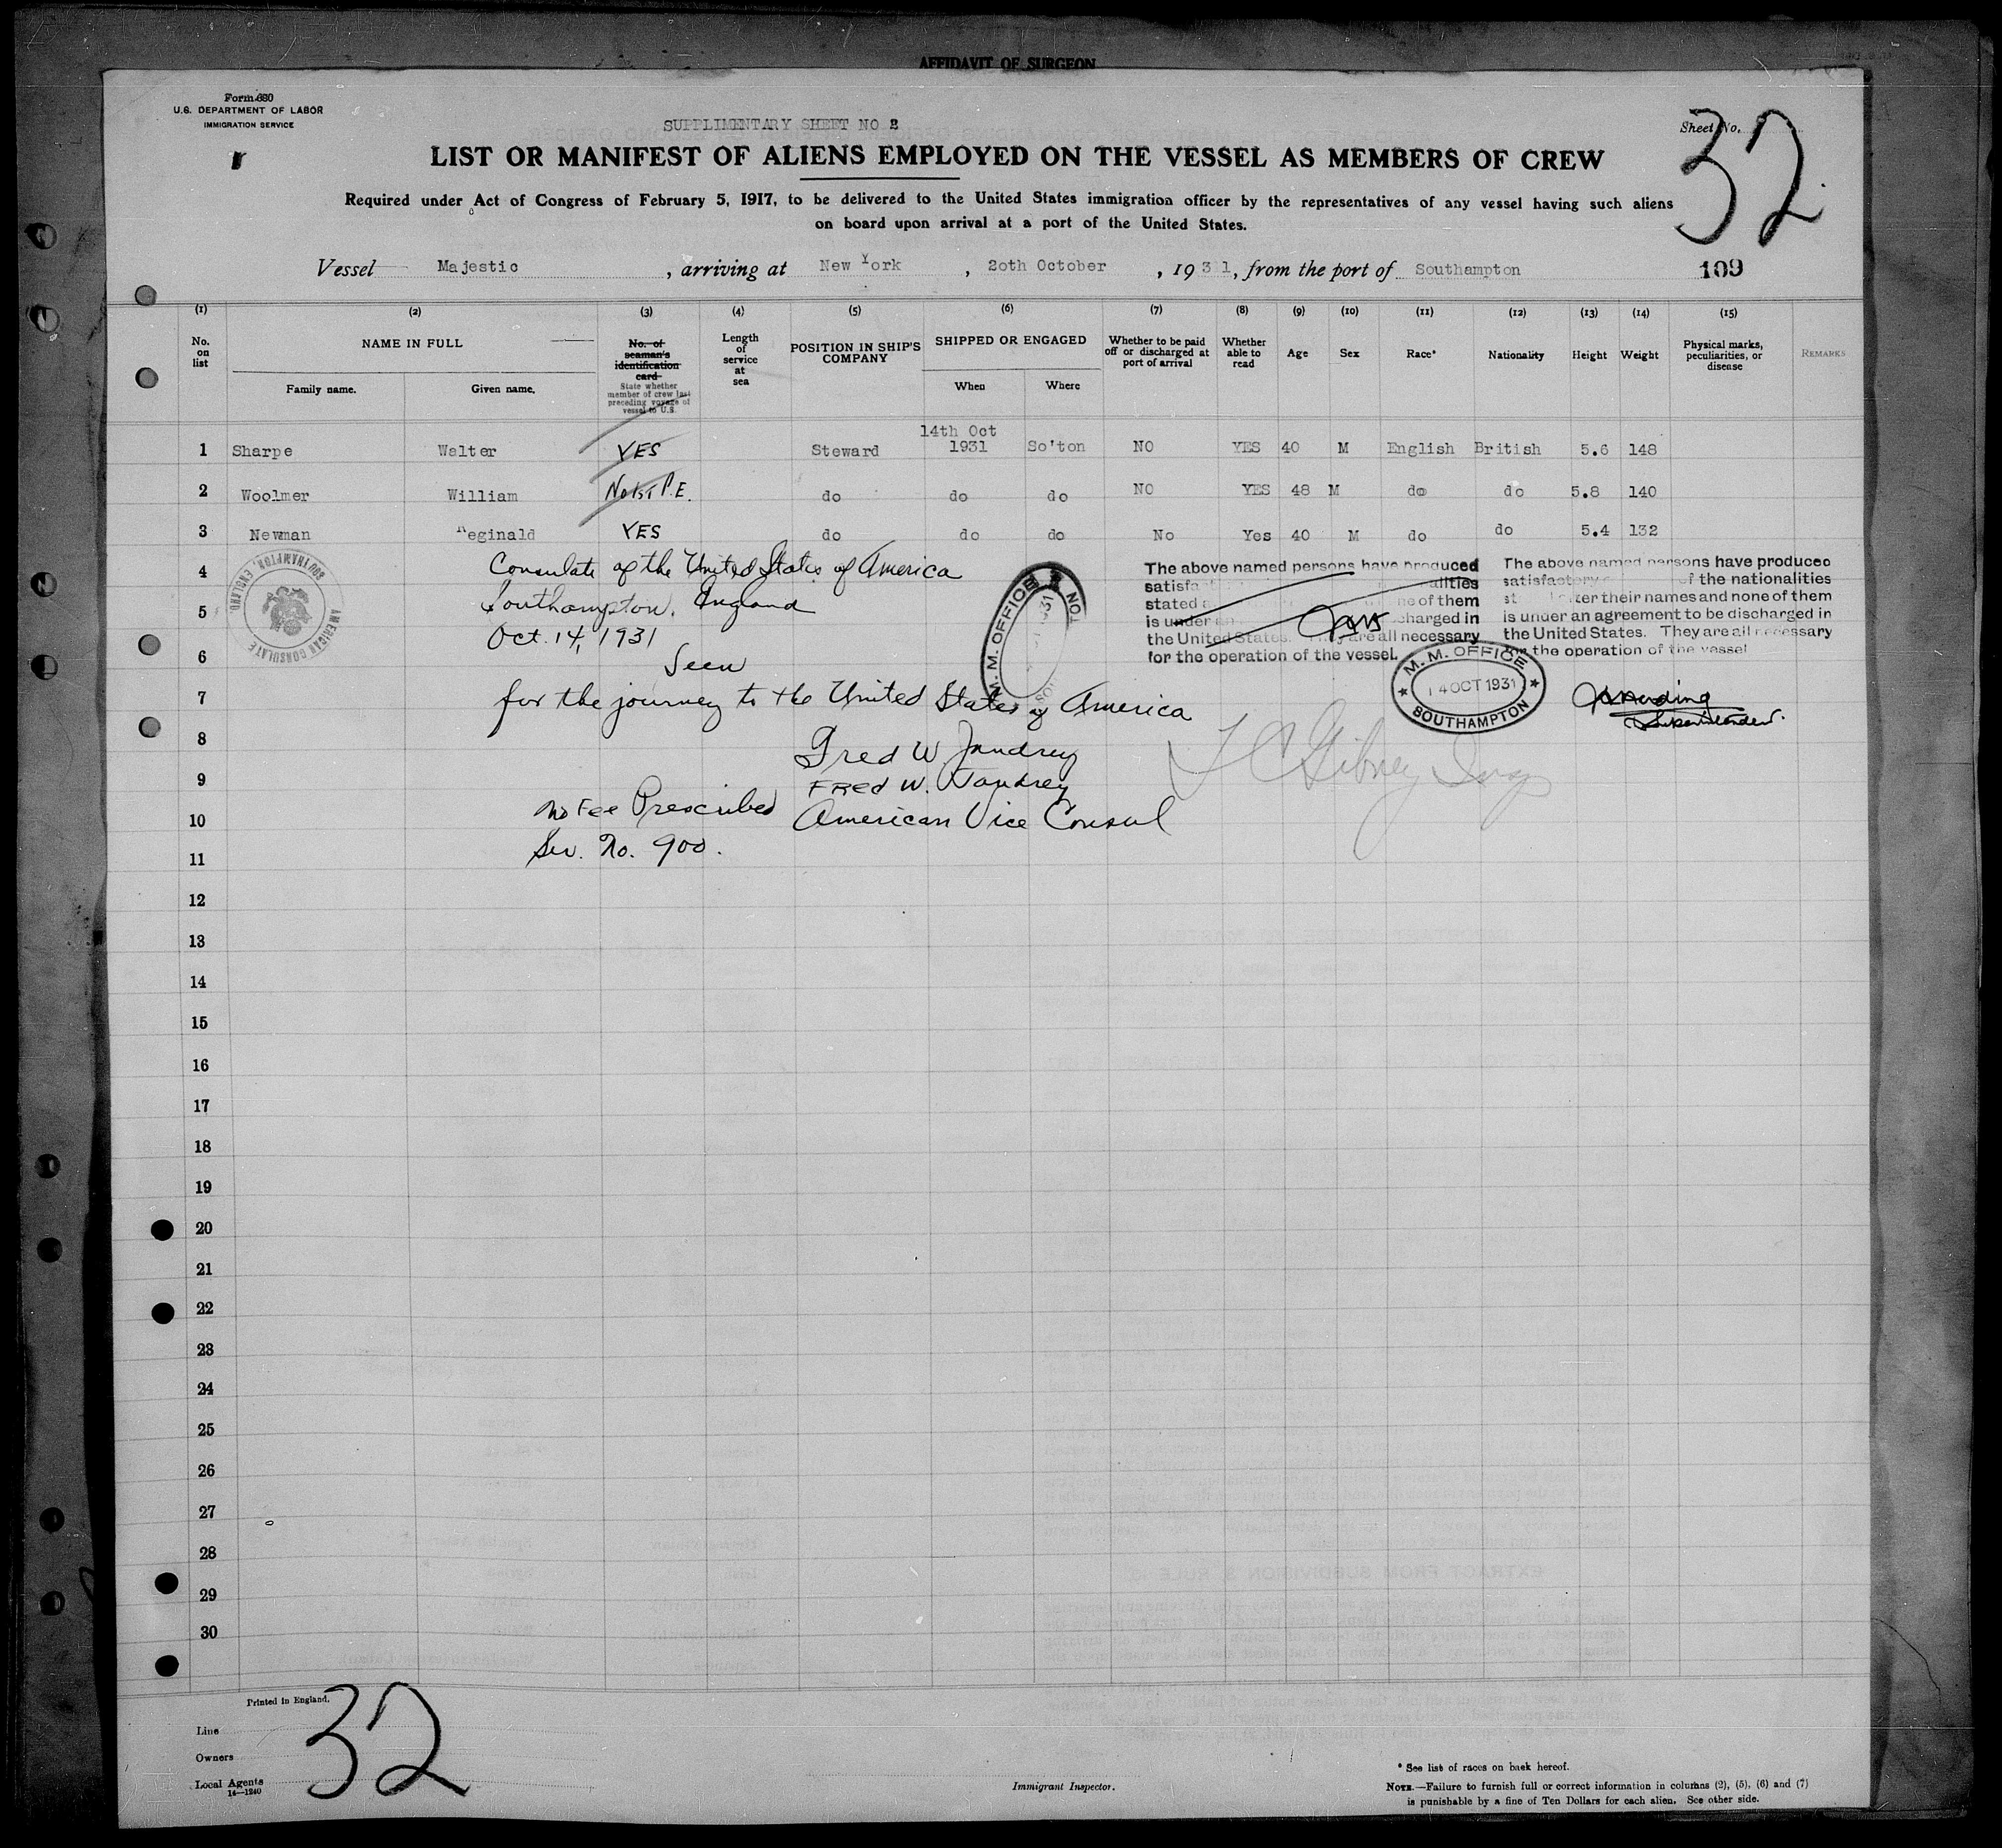 AFFIDAVIT OF SURGEON
Form 680
U.S. DEPARTMENT OF LABOR
IMMIGRATION SERVICE
SUPPLIMENTARY SHEET NO 2
Sheet No.
32
LIST OR MANIFEST OF ALIENS EMPLOYED ON THE VESSEL AS MEMBERS OF CREW
Required under Act of Congress of February 5, 1917, to be delivered to the United States immigration officer by the representatives of any vessel having such aliens
on board upon arrival at a port of the United States.
Vessel Majestic , arriving at New York , 20th October , 1931, from the port of Southampton 109
(1) (2) (3) (4) (5) (6) (7) (8) (9) (10) (11) (12) (13) (14) (15)
No. on list
NAME IN FULL
Family name. Given name.
No. of seaman's identification card
State whether member of crew last preceding voyage of vessel to U.S.
Length of service at sea
POSITION IN SHIP'S COMPANY
SHIPPED OR ENGAGED
When Where
Whether to be paid off or discharged at port of arrival
Whether able to read
Age
Sex
Race*
Nationality
Height
Weight
Physical marks, peculiarities, or disease
REMARKS
1 Sharpe Walter YES Steward 14th Oct 1931 So'ton NO YES 40 M English British 5.6 148
2 Woolmer William No 1st P.E. do do do NO YES 48 M do do 5.8 140
3 Newman Reginald YES do do do No Yes 40 M do do 5.4 132
4
5
6
7
8
9
10
11
12
13
14
15
16
17
18
19
20
21
22
23
24
25
26
27
28
29
30
AMERICAN CONSULATE
SOUTHAMPTON, ENGLAND
Consulate of the United States of America
Southampton, England
Oct. 14, 1931
Seen
for the journey to the United States of America
Fred W Jandrey
FRED W. Jandrey
American Vice Consul
No Fee Prescribed
Ser. No. 900.
M. M. OFFICE
The above named persons have produced
stated
is under
the United States. are all necessary
for the operation of the vessel.
The above named persons have produced
satisfactory of the nationalities
after their names and none of them
is under an agreement to be discharged in
the United States. They are all necessary
for the operation of the vessel
M. M. OFFICE
14 OCT 1931
SOUTHAMPTON
Superintendent.
Printed in England.
Line
Owners
Local Agents
14—1240
32
Immigrant Inspector.
* See list of races on back hereof.
NOTE.—Failure to furnish full or correct information in columns (2), (5), (6) and (7)
is punishable by a fine of Ten Dollars for each alien. See other side.